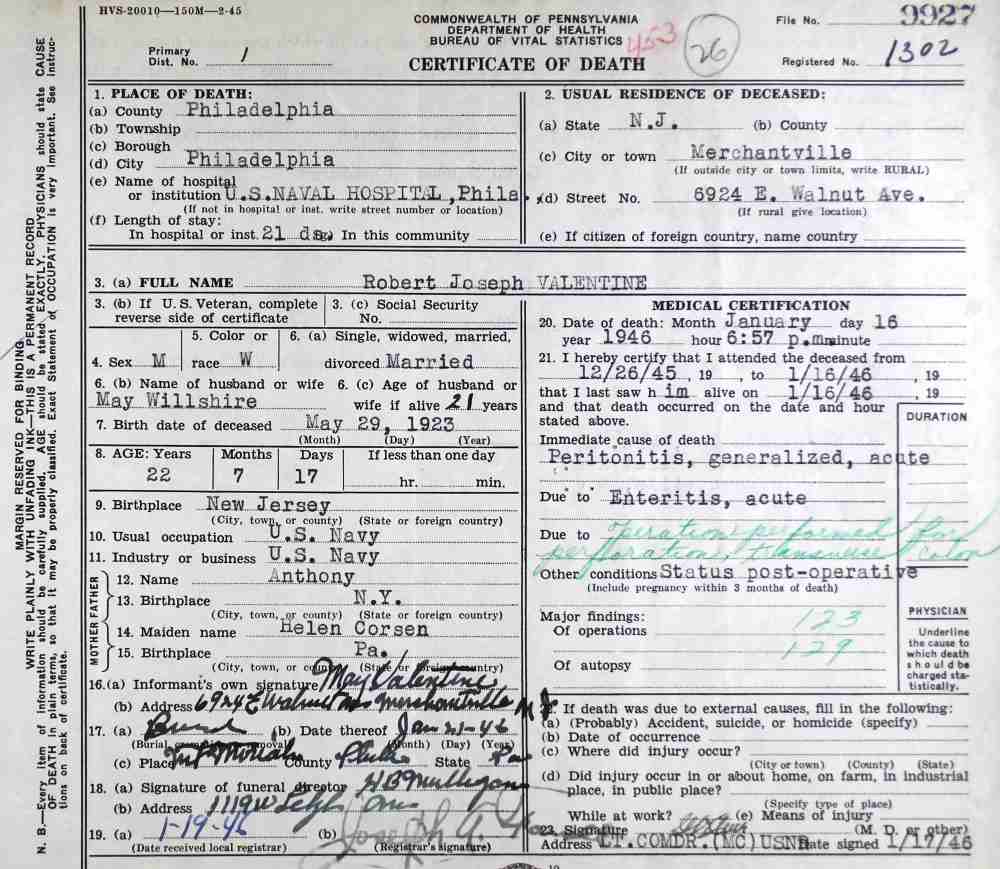 HVS-20010—150M—2-45
COMMONWEALTH OF PENNSYLVANIA
DEPARTMENT OF HEALTH
BUREAU OF VITAL STATISTICS
453
26
File No. 9927
Primary
Dist. No. 1
CERTIFICATE OF DEATH
Registered No. 1302
1. PLACE OF DEATH:
(a) County Philadelphia
(b) Township
(c) Borough
(d) City Philadelphia
(e) Name of hospital
or institution U.S.NAVAL HOSPITAL,Phila.
(If not in hospital or inst. write street number or location)
(f) Length of stay:
In hospital or inst. 21 In this community
2. USUAL RESIDENCE OF DECEASED:
(a) State N.J. (b) County
(c) City or town Merchantville
(If outside city or town limits, write RURAL)
(d) Street No. 6924 E. Walnut Ave.
(If rural give location)
(e) If citizen of foreign country, name country
3. (a) FULL NAME Robert Joseph VALENTINE
3. (b) If U.S. Veteran, complete
reverse side of certificate
3. (c) Social Security
No.
4. Sex M
5. Color or
race W
6. (a) Single, widowed, married,
divorced Married
6. (b) Name of husband or wife
May Willshire
6. (c) Age of husband or
wife if alive 21 years
7. Birth date of deceased May 29, 1923
(Month) (Day) (Year)
8. AGE: Years Months Days If less than one day
22 7 17 hr. min.
9. Birthplace New Jersey
(City, town, or county) (State or foreign country)
10. Usual occupation U.S. Navy
11. Industry or business U.S. Navy
FATHER
12. Name Anthony
13. Birthplace N.Y.
(City, town, or county) (State or foreign country)
MOTHER
14. Maiden name Helen Corsen
15. Birthplace Pa.
(City, town, or county) (State or foreign country)
16.(a) Informant's own signature May Valentine
(b) Address 6924 E Walnut Ave Merchantville N J
17. (a) Burial (b) Date thereof Jan 21-46
(Burial, cremation, removal) (Month) (Day) (Year)
(c) Place Mt Moriah County Phila State Pa
18. (a) Signature of funeral director H B Mulligan
(b) Address 1119 W Lehigh Ave
19. (a) 1-19-46 (b) Joseph A.
(Date received local registrar) (Registrar's signature)
MEDICAL CERTIFICATION
20. Date of death: Month January day 16
year 1946 hour 6:57 p.m minute
21. I hereby certify that I attended the deceased from
12/26/45, 19 , to 1/16/46 , 19
that I last saw h im alive on 1/16/46 , 19
and that death occurred on the date and hour
stated above.
DURATION
Immediate cause of death
Peritonitis, generalized, acute
Due to Enteritis, acute
Due to Operation performed for
perforation, transverse colon
Other conditions Status post-operative
(Include pregnancy within 3 months of death)
Major findings:
Of operations 123
129
Of autopsy
PHYSICIAN
Underline
the cause to
which death
should be
charged sta-
tistically.
If death was due to external causes, fill in the following:
(a) (Probably) Accident, suicide, or homicide (specify)
(b) Date of occurrence
(c) Where did injury occur?
(City or town) (County) (State)
(d) Did injury occur in or about home, on farm, in industrial
place, in public place?
(Specify type of place)
While at work? (e) Means of injury
23. Signature (M. D. or other)
Address LT.COMDR.(MC)USNR Date signed 1/17/46
MARGIN RESERVED FOR BINDING
WRITE PLAINLY WITH UNFADING INK—THIS IS A PERMANENT RECORD
N. B.—Every item of information should be carefully supplied. AGE should be stated EXACTLY. PHYSICIANS should state CAUSE
OF DEATH in plain terms, so that it may be properly classified. Exact Statement of OCCUPATION is very important. See instruc-
tions on back of certificate.